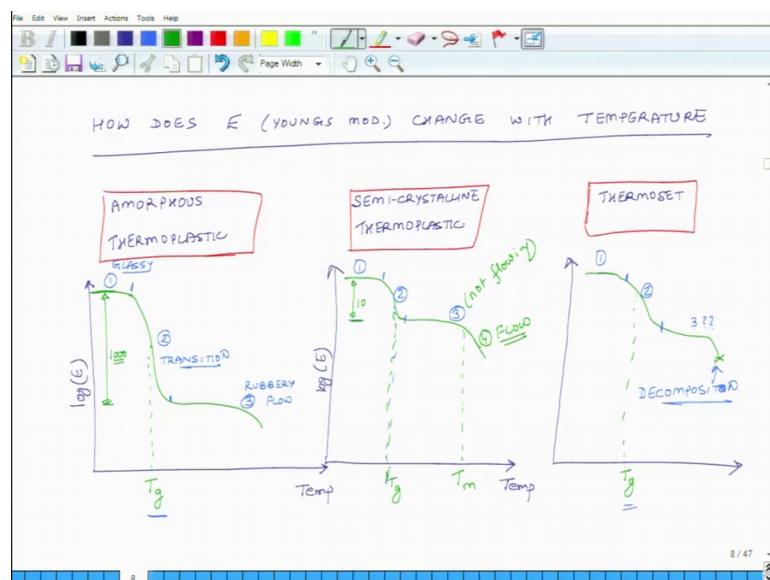 File Edit View Insert Actions Tools Help
B I
Page Width
HOW DOES E (YOUNGS MOD.) CHANGE WITH TEMPERATURE
AMORPHOUS
THERMOPLASTIC
① GLASSY
1000
②
TRANSITION
RUBBERY
③ FLOW
log(E)
Tg
Temp
SEMI-CRYSTALLINE
THERMOPLASTIC
①
10
②
③ (not flowing)
④ FLOW
log(E)
Tg
Tm
Temp
THERMOSET
①
②
3??
DECOMPOSITON
Tg
8 / 47
8